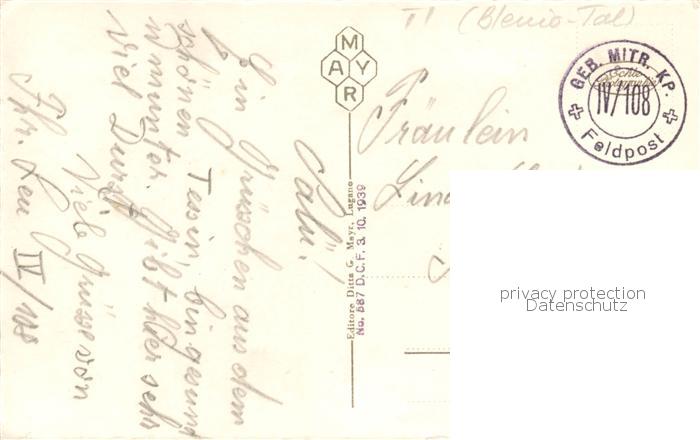 TI (Blenio-Tal)
MAYR
GEB. MITR. KP.
Echte
IV/108
Feldpost
Salü!
Ein Grüsschen aus dem
schönen Tesin bin gesund
u munter. Gibt hier sehr
viel Durst
Viele Grüsse von
Ihr. Leu IV/108
Editore Ditta G. Mayr, Lugano
No. 587 D.C.F. 3. 10. 1939
Fräulein
privacy protection
Datenschutz